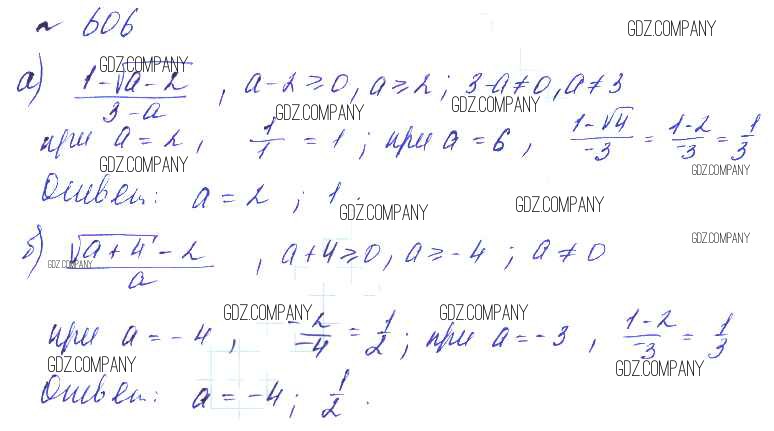 ~ 606
GDZ.COMPANY
GDZ.COMPANY
а) (1-√(a-2))/(3-a) , a-2≥0, a≥2; 3-a≠0, a≠3
GDZ.COMPANY GDZ.COMPANY
при a=2, 1/1 = 1; при a=6, (1-√4)/-3 = (1-2)/-3 = 1/3
GDZ.COMPANY GDZ.COMPANY
Ответ: a=2; 1.
GDZ.COMPANY GDZ.COMPANY
б) (√(a+4)-2)/a , a+4≥0, a≥-4; a≠0
GDZ.COMPANY GDZ.COMPANY
GDZ.COMPANY GDZ.COMPANY
при a=-4, -2/-4 = 1/2; при a=-3, (1-2)/-3 = 1/3
GDZ.COMPANY GDZ.COMPANY
Ответ: a=-4; 1/2.